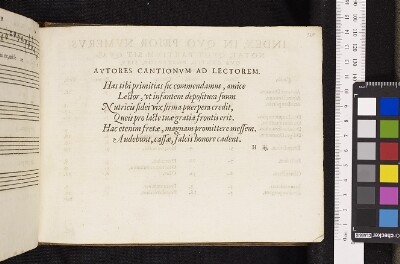 AVTORES CANTIONVM AD LECTOREM.
Has tibi primitias sic commendamus, amice
Lector, vt infantem depositura suum
Nutricis fidei vix firma puerpera credit,
Queis pro lacte tuæ gratia frontis erit.
Hac etenim fretæ, magnam promittere messem,
Audebunt, cassæ, falcis honore cadent.